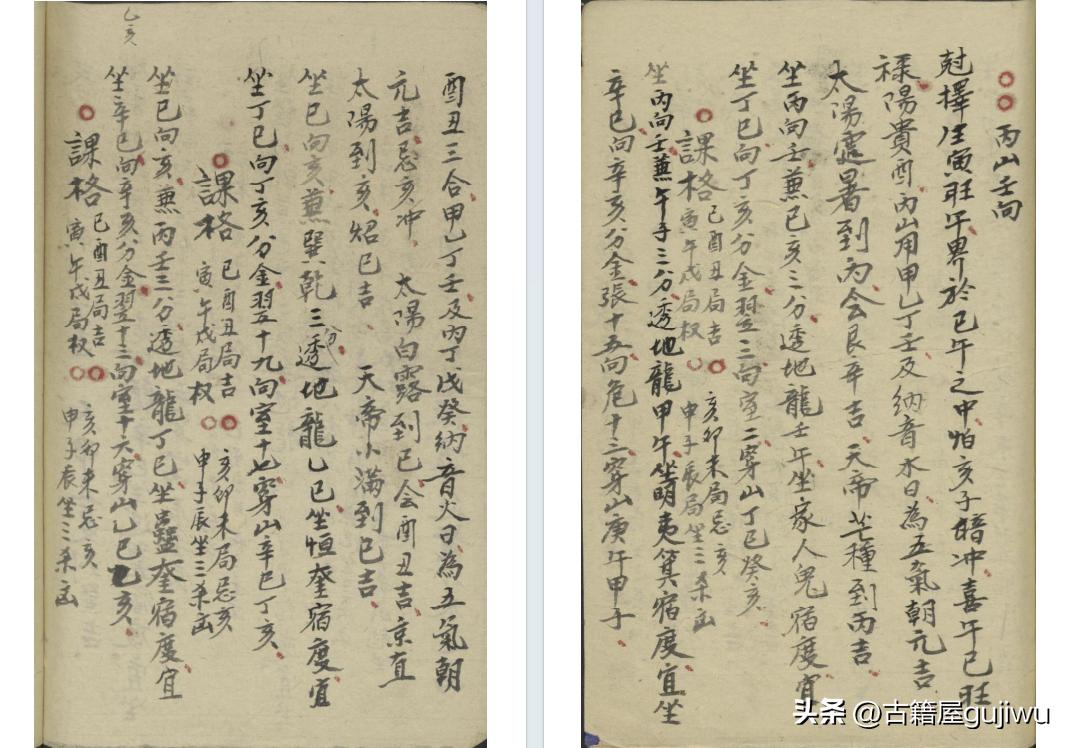 丙山壬向
尅擇生寅旺午界於巳午之中怕亥子暗冲喜午巳旺
祿陽貴酉丙山用甲乙丁壬及納音水日為五氣朝元吉
太陽處暑到丙会艮辛吉 天帝芒種到丙吉
坐丙向壬兼巳亥三分透地龍壬午坐家人鬼宿度宜
坐丁巳向丁亥分金翌三向室二穿山丁巳癸亥
課格 巳酉丑局吉 寅午戌局权 亥卯未局忌亥 申子辰局坐三杀凶
坐丙向壬兼午子三分透地龍甲午坐明夷箕宿度宜坐
辛巳向辛亥分金張十五向危十三穿山庚午甲子
乙亥
酉丑三合甲乙丁壬及丙丁戊癸納音火日為五氣朝
元吉忌亥冲 太陽白露到巳会酉丑吉京直
太陽到亥炤巳吉 天帝小满到巳吉
坐巳向亥兼巽乾三分透地龍乙巳坐恒奎宿度宜
坐丁巳向丁亥分金翌十九向室十七穿山辛巳丁亥
課格 巳酉丑局吉 寅午戌局权 亥卯未局忌亥 申子辰坐三杀凶
坐巳向亥兼丙壬三分透地龍丁巳坐蠱奎宿度宜
坐辛巳向辛亥分金翌十三向室十六穿山乙巳乙亥
課格 巳酉丑局吉 寅午戌局权 亥卯未忌亥 申子辰坐三杀凶
头条 @古籍屋gujiwu